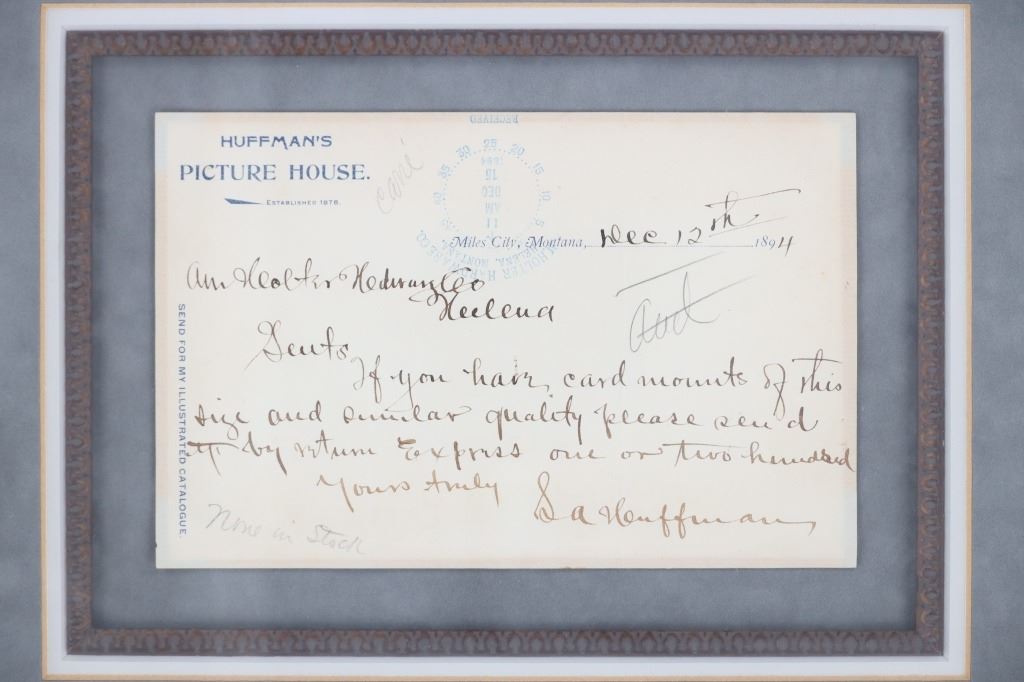 HUFFMAN'S
PICTURE HOUSE.
ESTABLISHED 1878.
RECEIVED
5 10 15 20 25 30 35 40
1894
15
DEC
AM
11
A.M. HOLTER HARDWARE CO.
HELENA, MONTANA.
Miles City, Montana, Dec 12th 1894
Am Holter Hedwary Co
Heelena
Gents
If you have card mounts of this
size and similar quality please send
by return Express one or two hundred
Yours truly
L a Huffman
None in Stock
SEND FOR MY ILLUSTRATED CATALOGUE.